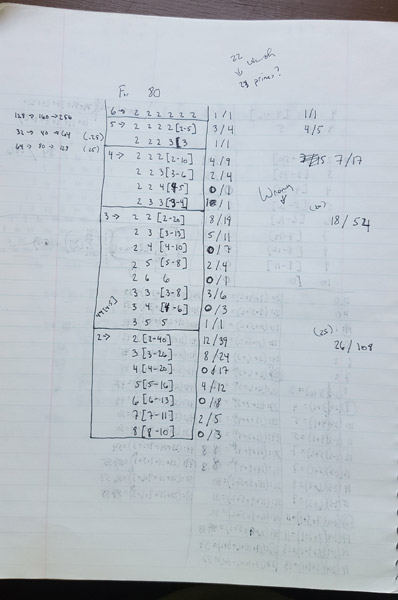 For 80
22
↓ which
28 primes?
128 → 160 → 256
32 → 40 → 64 (.25)
64 → 80 → 128 (.25)
6 → 2 2 2 2 2 2 1/1 1/1
5 → 2 2 2 2 [2-5] 3/4 4/5
2 2 2 3 [3 1/1
4 → 2 2 2 [2-10] 4/9
2 2 3 [3-6] 2/4 7/17
2 2 4 [4-5] 0/1
2 3 3 [3-4] /1
Wrong
↓
3 → 2 2 [2-20] 8/19 18/54
2 3 [3-13] 5/11
2 4 [4-10] 0/7
2 5 [5-8] 2/4
2 6 6 0/1
3 3 [3-8] 3/6
3 4 [4-6] 0/3
3 5 5 1/1
2 → 2 [2-40] 12/39 (25)
3 [3-26] 8/24 26/108
4 [4-20] 0/17
5 [5-16] 4/12
6 [6-13] 0/8
7 [7-11] 2/5
8 [8-10] 0/3